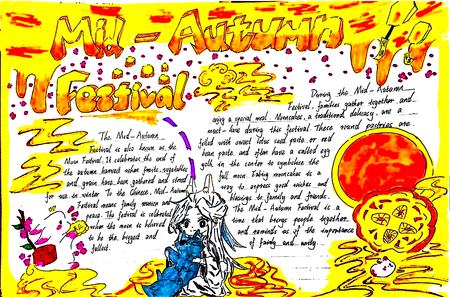 Mid-Autumn
Festival
The Mid-Autumn
Festival is also known as the
Moon Festival. It celebrates the end of
the autumn harvest when fruits, vegetables
and grain have been gathered and stored
for use in winter. To the Chinese, Mid-Autumn
Festival means family reunion and
peace. The festival is celebrated
when the moon is believed
to be the biggest and
fullest.
During the Mid-Autumn
Festival, families gather together and
enjoy a special meal. Mooncakes, a traditional delicacy, are a
must-have during this festival. These round pastries are
filled with sweet lotus seed paste or red
bean paste, and often have a salted egg
yolk in the center to symbolize the
full moon. Eating mooncakes is a
way to express good wishes and
blessings to family and friends.
The Mid-Autumn Festival is a
time that brings people together
and reminds us of the importance
of family and unity.